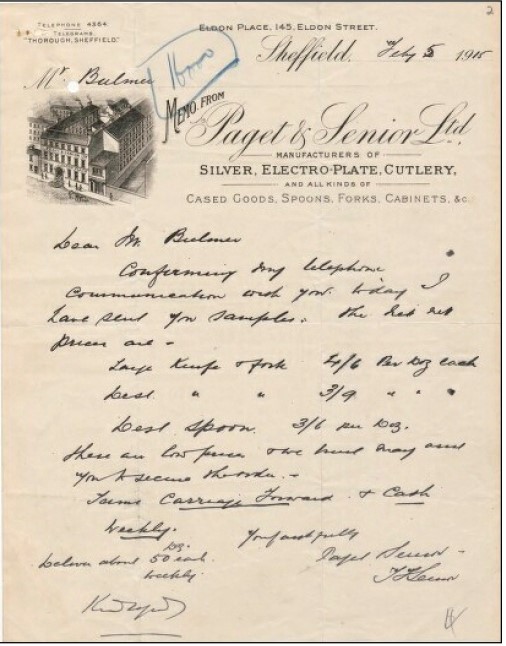 2
TELEPHONE 4364.
TELEGRAMS
"THOROUGH, SHEFFIELD."
ELDON PLACE, 145, ELDON STREET.
Sheffield, Feby 5 1915
Mr. Bulmer
16000
MEMO. FROM
Paget & Senior Ltd.,
MANUFACTURERS OF
SILVER, ELECTRO-PLATE, CUTLERY,
AND ALL KINDS OF
CASED GOODS, SPOONS, FORKS, CABINETS, &c.
Dear Mr. Bulmer
Confirming my telephone
communication with you today I
have sent you samples. The net
prices are -
Large Knife & fork 4/6 Per Doz each
Dest. " " 3/9 " " "
Dest spoon. 3/6 per Doz.
These are low prices & we trust may assist
you to secure the order. -
Terms Carriage Forward & Cash
Weekly.
Yours faithfully
Paget Senior -
Deliver about 50 Dz. each
weekly.